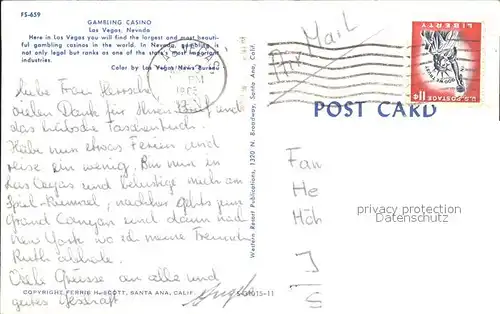 FS-659
GAMBLING CASINO
Las Vegas, Nevada
Here in Las Vegas you will find the largest and most beauti-
ful gambling casinos in the world. In Nevada, gambling is
not only legal but is one of the state's most important
industries.
Color by Las Vegas News Bureau
Liebe Frau
vielen Dank für Ihren Brief und
das hübsche Taschentuch.
Habe nun etwas Ferien und
reise ein wenig. Bin nun in
Las Vegas und belustige mich am
Spiel-Rummel, nachher gehts zum
Grand Canyon und dann nach
New York wo ich meine Freundin
Ruth abhole.
Viele Grüsse an alle und
gutes Geschäft
COPYRIGHT FERRIS H. SCOTT, SANTA ANA, CALIF.
S-51015-11
Western Resort Publications, 1320 N. Broadway, Santa Ana, Calif.
PM
Air Mail
LIBERTY
U.S. POSTAGE 11¢
POST CARD
Fam
He
Höh
privacy protection
Datenschutz